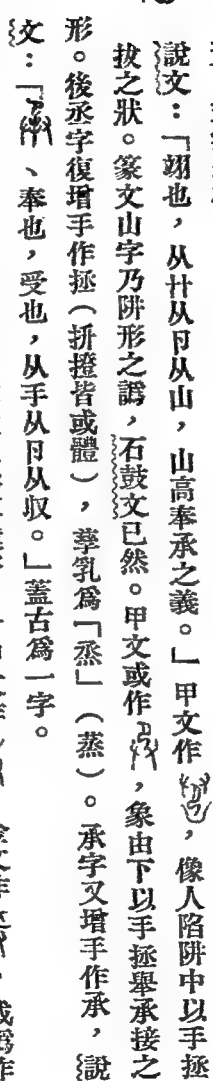 說文：「翊也，从廾从卪从山，山高奉承之義。」甲文作，像人陷阱中以手拯
拔之狀。篆文山字乃阱形之譌，石鼓文已然。甲文或作，象由下以手拯舉承接之
形。後丞字復增手作拯（抍撜皆或體），孳乳爲「烝」（蒸）。承字又增手作承，說
文：「、奉也，受也，从手从卪从収。」蓋古爲一字。